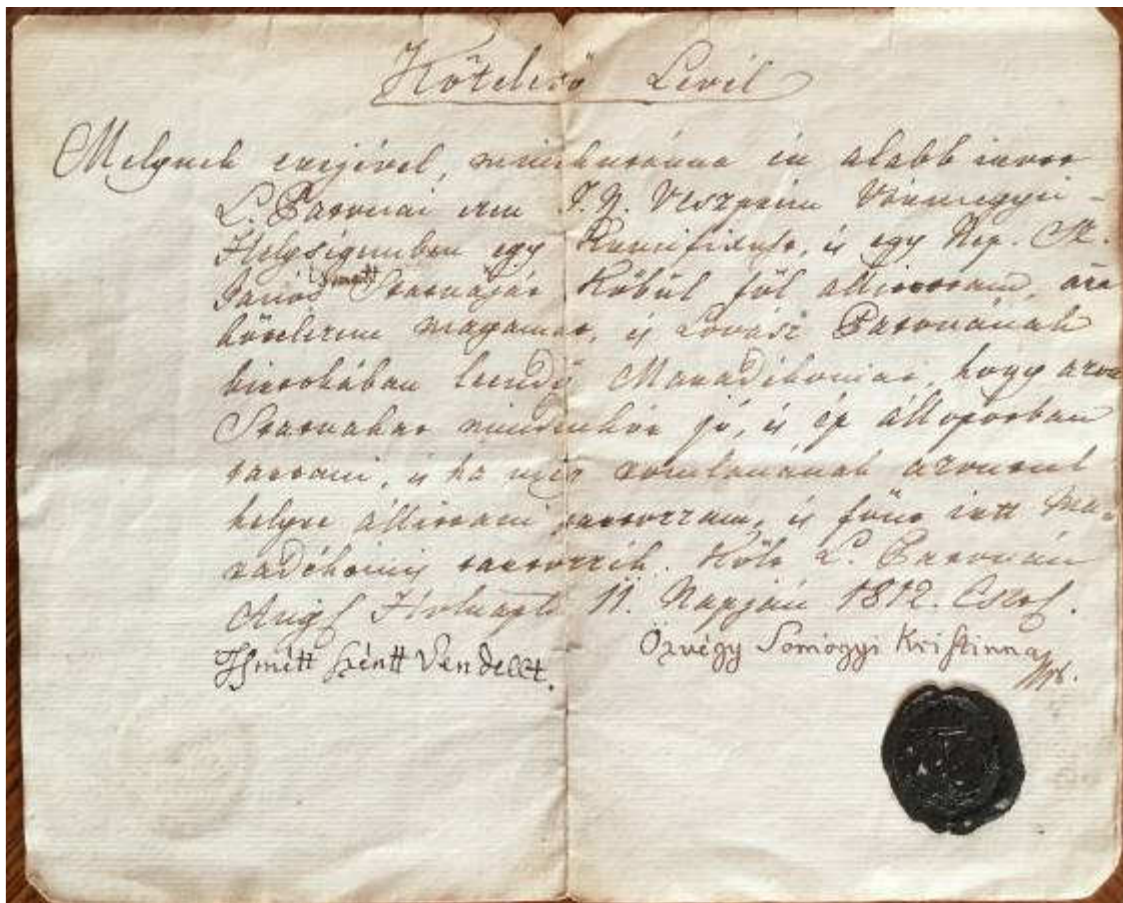 Kötelező Levél
Melynek erejével, minekutánna én alább irott
L. Patonai ezen T. N. Veszprém Vármegyei
Helységemben egy Krucifixust, és egy Nep. Sz.
János Ismétt Statuáját Kőbül föl állittottam, arra
kötelezem magamat, és Lovász Patonának
birtokában leendő Maradékomat, hogy azon
Statuakat mindenkor jó, és ép állapotban
tartani, és ha meg romlanának azonnal
helyre állittani tartozzam, és fönt irtt Ma-
radékomis tartozzék. Költ L. Patonán
11. Napján 1812. Eszt.
Ismétt Széntt Vendelt.
Özvégy Somogyi Kristinna